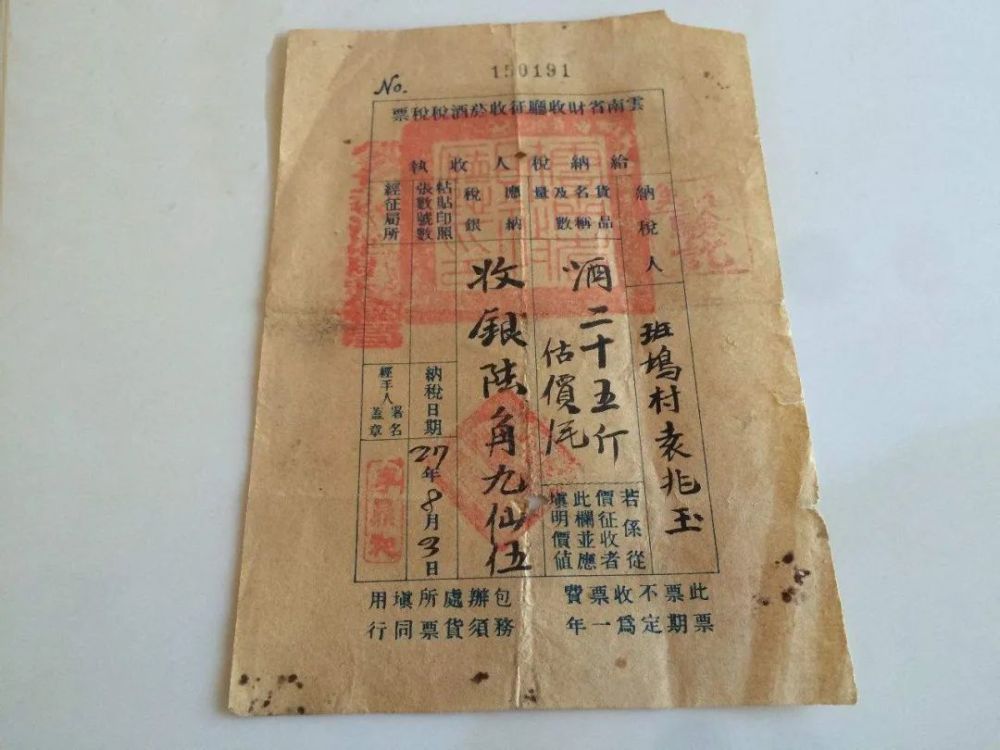 No. 150191
雲南省財政廳征收菸酒稅稅票
給納稅人收執
納稅人
班鳩村袁兆玉
貨品名稱及數量
酒二十五斤
估價
若係從
價征收者
此欄並應
填明價值
應納稅銀
收銀陸角九仙伍
粘貼印照
張數號數
納稅日期
27年8月3日
經征局所
經手人
署名
蓋章
此票不收票費
票期定為一年
包辦處所填用
務須貨票同行